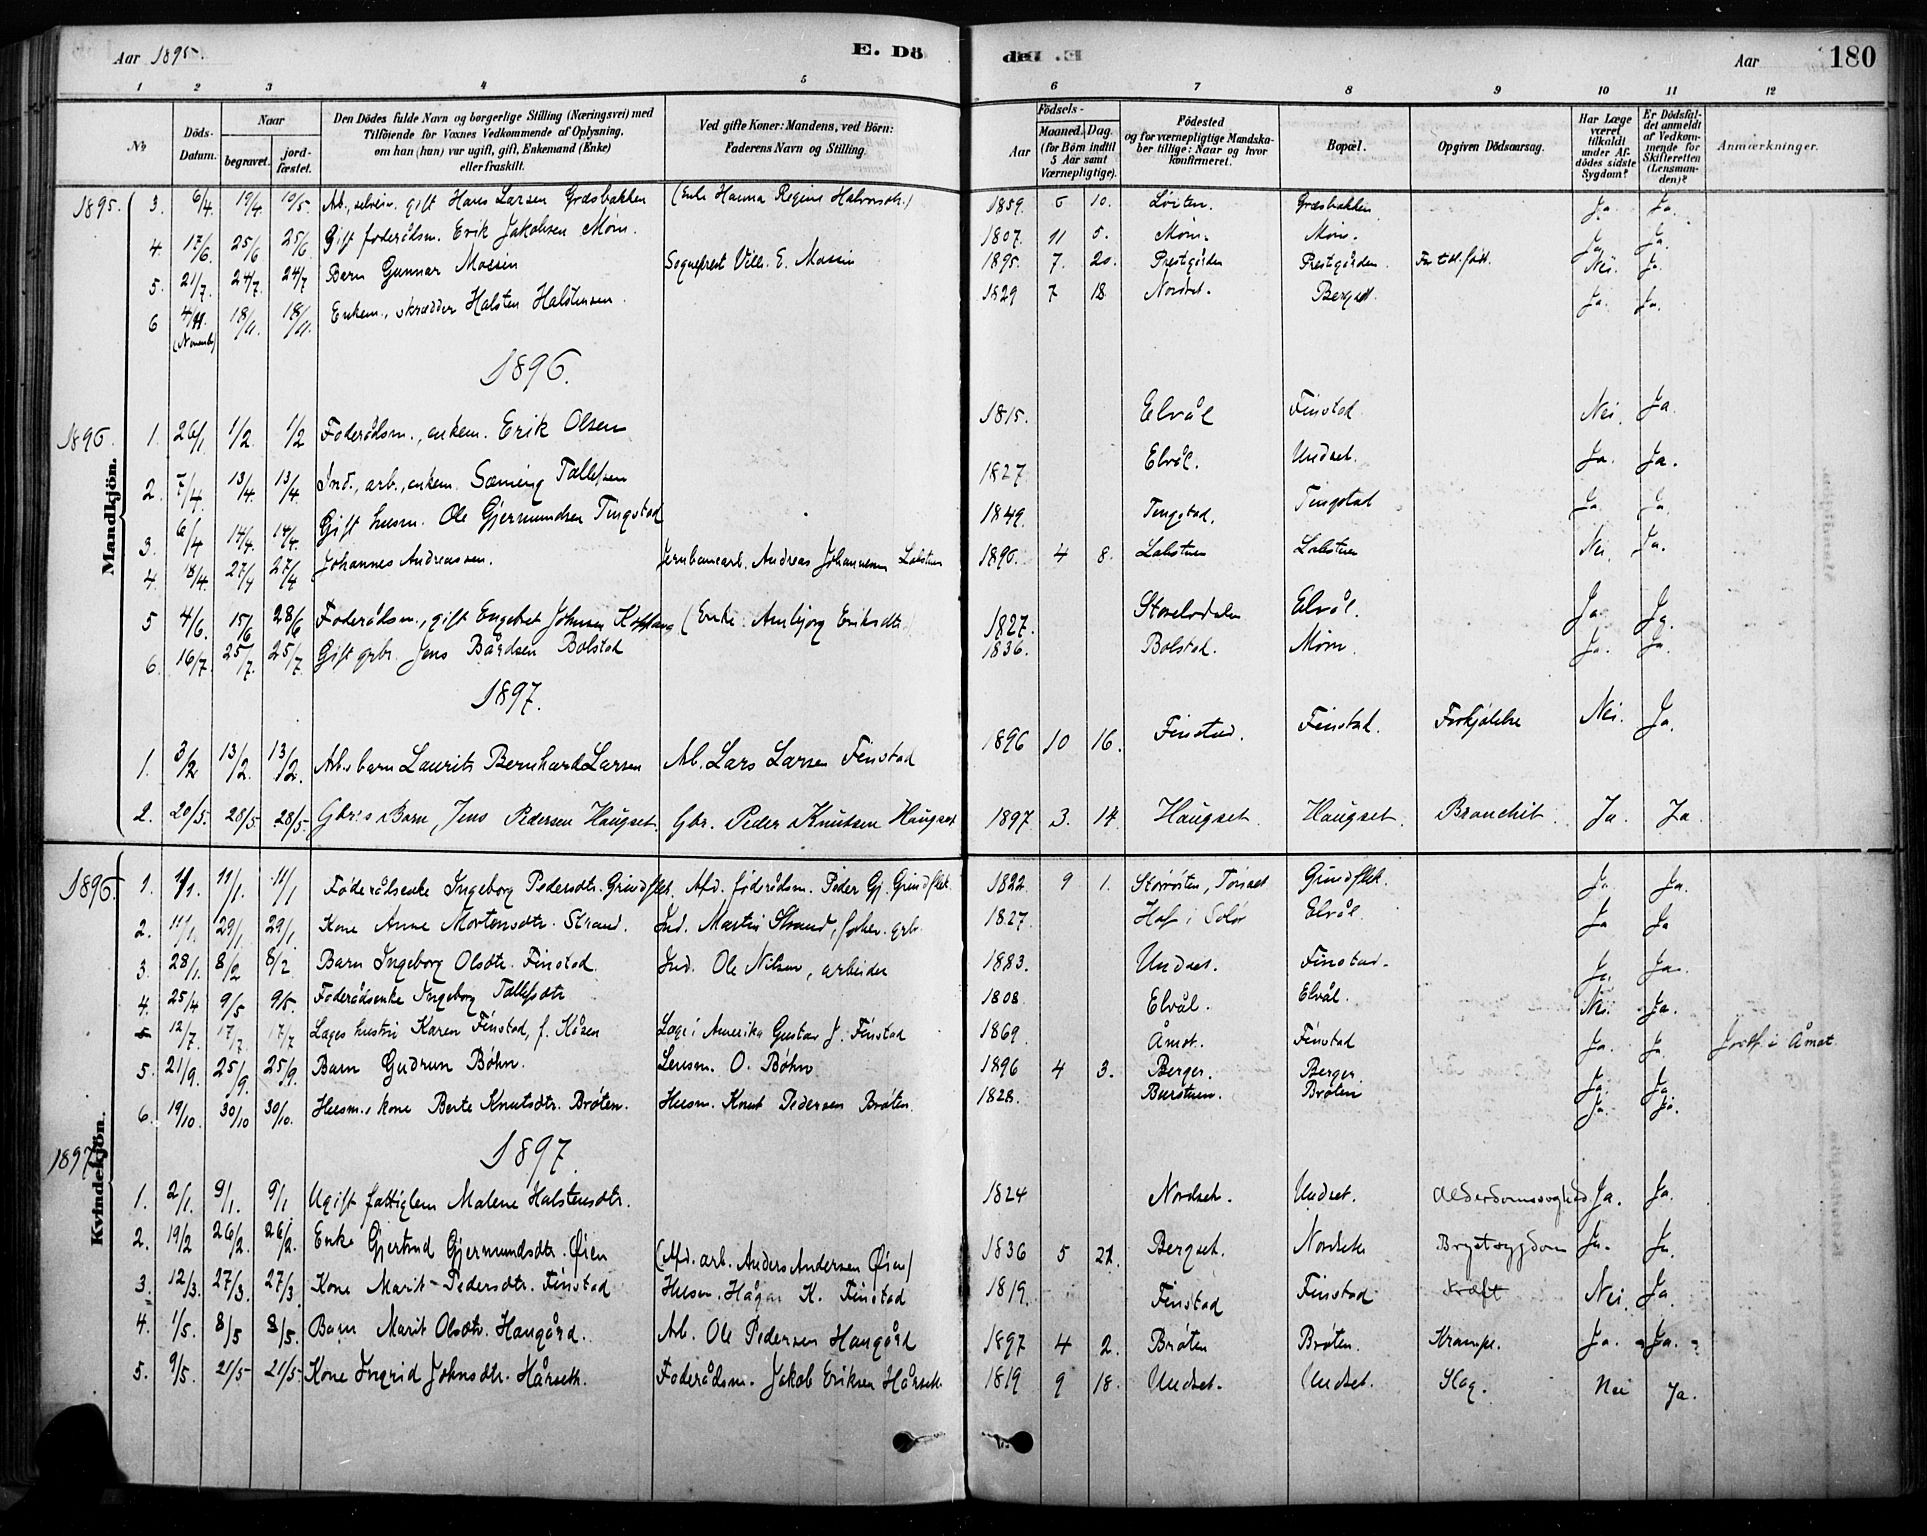 Aar 1895. E. Dö
den E. Aar 180
1 2 3 4 5 6 7 8 9 10 11 12
No Döds-Datum. Naar begravet. jordfæstet. Den Dödes fulde Navn og borgerlige Stilling (Næringsvei) med Tilföiende for Voxnes Vedkommende af Oplysning, om han (hun) var ugift, gift, Enkemand (Enke) eller fraskilt. Ved gifte Koner: Mandens, ved Börn: Faderens Navn og Stilling. Födsels- Aar Maaned. Dag. (for Börn indtil 5 Aar samt Værnepligtige). Födested og for værnepligtige Mandskaber tillige: Naar og hvor konfirmeret. Bopæl. Opgiven Dödsaarsag. Har Læge været tilkaldt under Afdödes sidste Sygdom? Er Dödsfaldet anmeldt af Vedkommende for Skifteretten (Lensmanden)? Anmærkninger.
Mandkjön.
1895. 3. 6/4. 19/4. 10/5. Arb., selveier, gift Hans Larsen Græsbakken (Enke Hanna Regine Halvorsdtr.) 1859. 6 10. Løiten. Græsbakken Ja. Ja.
4. 17/6. 25/6 25/6. Gift føderådsm. Erik Jakobsen Møm. 1807. 11 5. Møm. Møm. Ja. Ja.
5. 21/7. 24/7. 24/7 Barn Gunnar Mossin Sogneprest Vilh. E. Mossin 1895. 7. 20. Prestgården Prestgården. For tidl. født. Nei. Ja.
6 4/11. (Novemb.) 18/11. 18/11. Enkem., skrædder Halsten Halstensen. 1829 7 18. Nordset. Berget. Ja. Ja.
1896.
1896. 1. 26/1 1/2. 1/2 Føderådsm., enkem. Erik Olsen 1815. Elvål Finstad. Nei. Ja.
2. 7/4. 13/4. 13/4. Ind., arb., enkem. Sæming Tallefsen 1827. Elvål. Undset. Ja. Ja.
3. 6/4 14/4. 14/4. Gift husm. Ole Gjermundsen Tingstad 1849. Tingstad. Tingstad Ja. Ja.
4. 18/4. 27/4 27/4 Johannes Andreassen. Jernbanearb. Andreas Johannesen 1896. 4 8. Nei. Ja.
5 4/6. 15/6 28/6 Føderådsm., gift Engebret Johnsen Koppang (Enke: Annbjørg Eriksdtr.) 1827. Storelvdalen Elvål. Ja. Ja.
6. 16/7. 25/7. 25/7. Gift gbr. Jens Bårdsen Bolstad 1836. Bolstad. Møm. Ja. Ja.
1897.
1. 3/2. 13/2. 13/2. Arb.s barn Laurits Bernhard Larsen Arb. Lars Larsen Finstad 1896 10 16. Finstad. Finstad. Forkjølelse Nei. Ja.
2. 20/5. 28/5 28/5. Gbr.s Barn, Jens Pedersen Haugset. Gbr. Peder Knutsen Haugset 1897 3. 14. Haugset. Haugset. Bronchit. Ja. Ja.
Kvindekjön.
1896. 1. 1/1. 11/1. 11/1 Føderådsenke Ingeborg Pedersdtr. Grindflek. Afd. føderådsm. Peder Gj. Grindflek. 1822. 9 1. Grindflek. Ja. Ja.
2. 11/1. 29/1. 29/1. Kone Anne Mortensdtr. Strand. Ind. Martin Strand, forhen. gbr. 1827. Hof i Solør Elvål. Ja Ja
3. 28/1. 8/2 8/2. Barn Ingeborg Olsdtr. Finstad. Ind. Ole Nilsen, arbeider 1883. Undset. Finstad. Ja. Ja.
4. 25/4 9/5 9/5. Føderådsenke Ingeborg Tallefsdtr 1808. Elvål. Elvål. Nei. Ja.
5 12/7. 17/7. 17/7 Læges hustru Karen Finstad, f. Kåsen Læge i Amerika Gustav J. Finstad 1869. Åmot. Finstad Ja. Ja. Jordf. i Åmot.
5. 21/9. 25/9. 25/9. Barn Gudrun Bøhn. Lensm. O. Bøhn 1896 4 3. Berger. Berger Ja. Ja
6. 19/10. 30/10 30/10. Husm.s kone Berte Knutsdtr. Brøten. Husm. Knut Pedersen Brøten. 1828. Burstuen. Brøten Ja. Ja.
1897.
1897. 1. 2/1. 9/1. 9/1 Ugift fattiglem Malene Halstensdtr. 1824 Nordset. Undset. Alderdomssvaghed Ja. Ja.
2. 19/2 26/2. 26/2. Enke Gjertrud Gjermundsdtr. Øien (Afd. arb. Anders Andersen Øien) 1836 5 21. Bergset. Nordset Brystsygdom Ja. Ja.
3. 12/3. 27/3. 27/3 Kone Marit Pedersdtr. Finstad Husm. Hågen K. Finstad 1819. Finstad Finstad Kræft Nei. Ja.
4. 1/5. 8/5 8/5. Barn Marit Olsdtr. Haugård. Arb. Ole Pedersen Haugård 1897 4 2. Brøten Brøten. Krampe. Ja. Ja.
5. 9/5. 21/5 21/5 Kone Ingrid Johnsdtr. Hårseth. Føderådsm. Jakob Eriksen Hårseth 1819 9 18. Undset. Undset. Slag. Nei Ja.